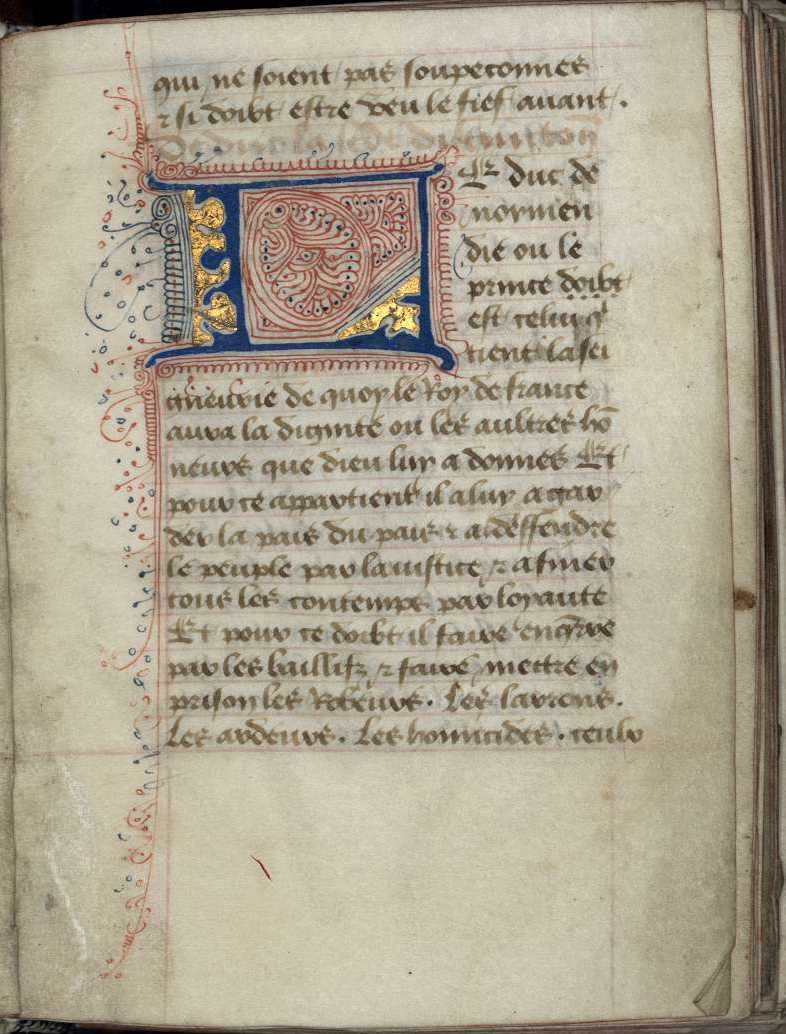 qui ne soient pas soupeconnes
⁊ si doibt estre veu le fief auant.
L
Er duc de
normen
die ou le
prince doibt
est celui q̄
tient la sei
gneurie de quoy le Roy de france
aura la dignite ou les aultres hō
neurs que dieu luy a donnes Et
pour ce appartient il a luy a gar
der la pais du pais ⁊ a deffendre
le peuple par la iustice ⁊ a finer
tous les contemps par loyaute
Et pour ce doibt il faire enc̄rre
par les baillifz ⁊ faire mettre en
prison les Robeurs. Les larrons.
Les ardeurs. Les homicides. ceulx